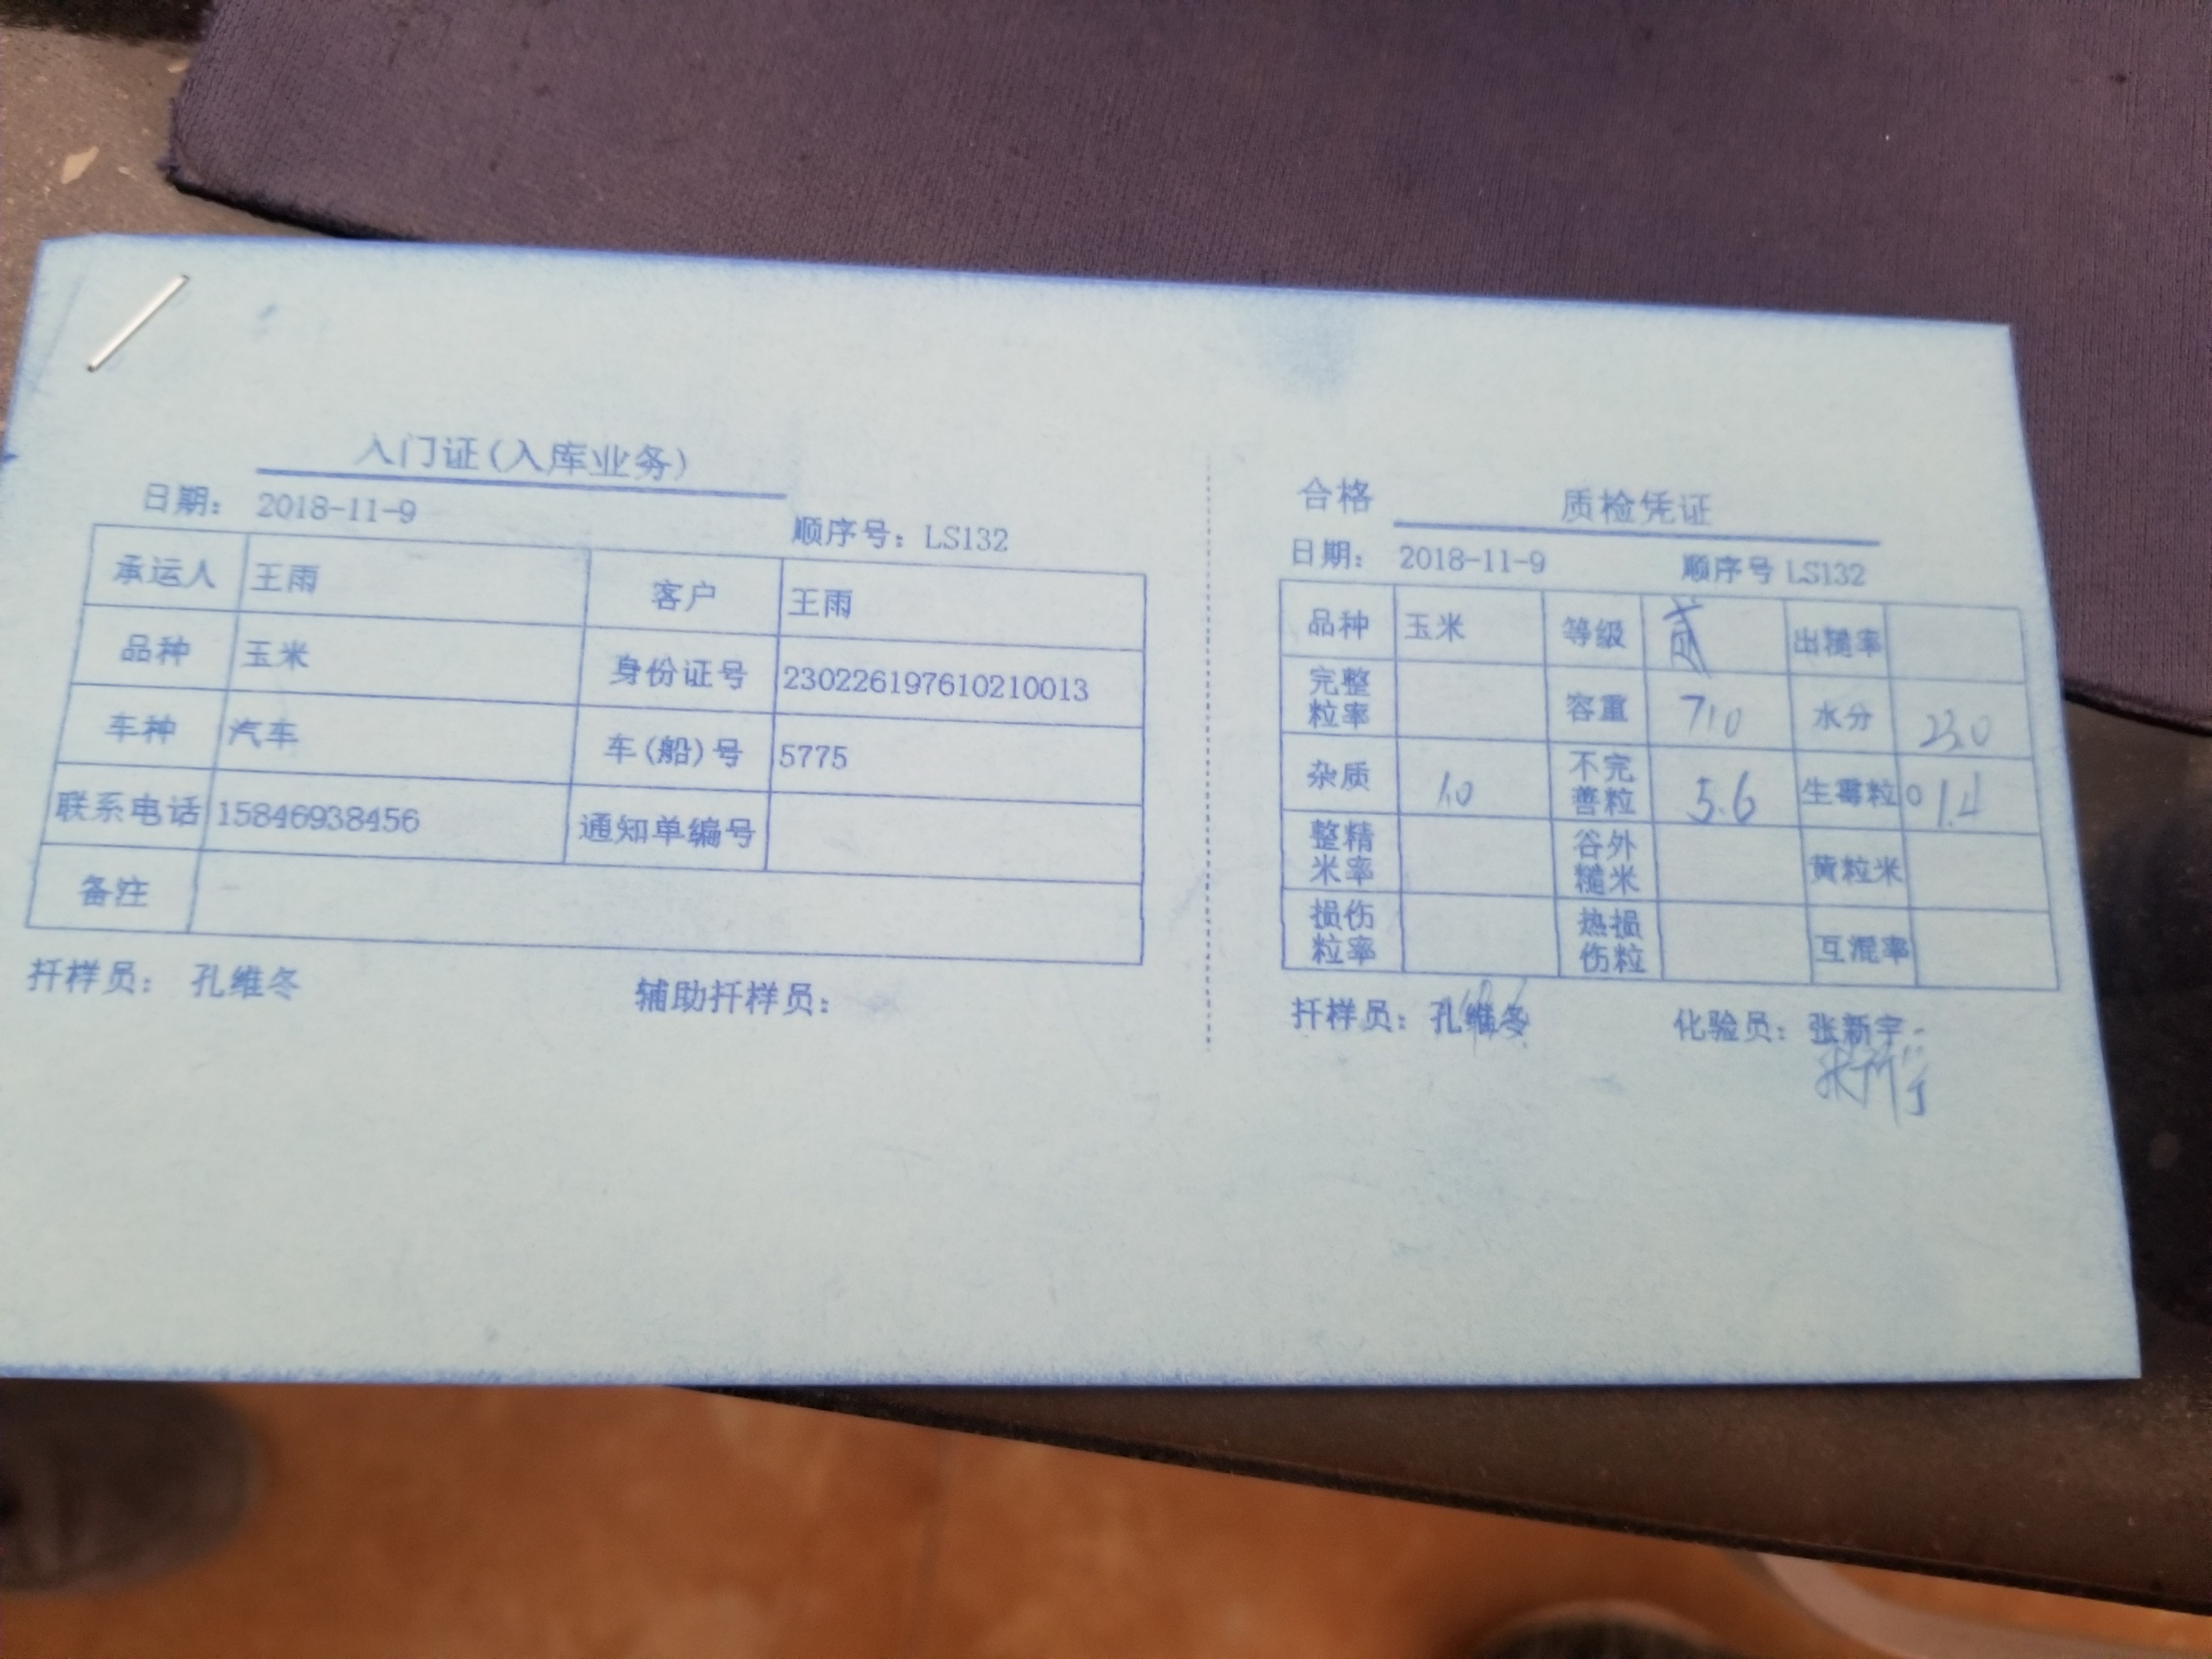 入门证(入库业务)
日期: 2018-11-9 顺序号: LS132
承运人 王雨 客户 王雨
品种 玉米 身份证号 230226197610210013
车种 汽车 车(船)号 5775
联系电话 15846938456 通知单编号
备注
扦样员: 孔维冬 辅助扦样员:
合格 质检凭证
日期: 2018-11-9 顺序号 LS132
品种 玉米 等级 贰 出糙率
完整粒率 容重 710 水分 23.0
杂质 1.0 不完善粒 5.6 生霉粒 0 1.4
整精米率 谷外糙米 黄粒米
损伤粒率 热损伤粒 互混率
扦样员: 孔维冬 化验员: 张新宇